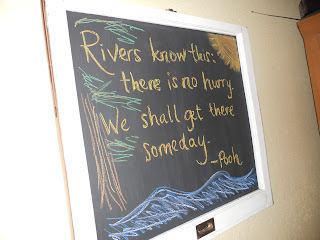 Rivers know this:
there is no hurry.
We shall get there
someday.
-Pooh